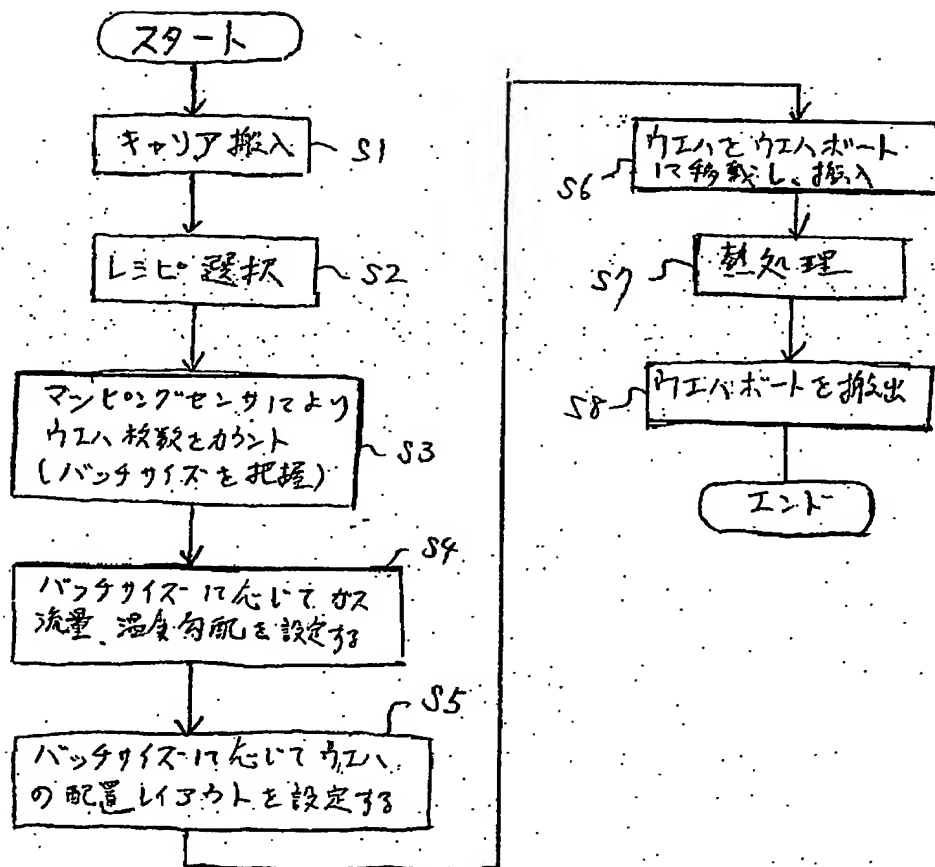 スタート
キャリア搬入
S1
レシピ選択
S2
マッピングセンサにより
ウエハ枚数をカウント
(バッチサイズを把握)
S3
S4
バッチサイズに応じてガス
流量、温度勾配を設定する
S5
バッチサイズに応じてウエハ
の配置レイアウトを設定する
ウエハをウエハボート
に移載し、搬入
S6
熱処理
S7
ウエハボートを搬出
S8
エンド